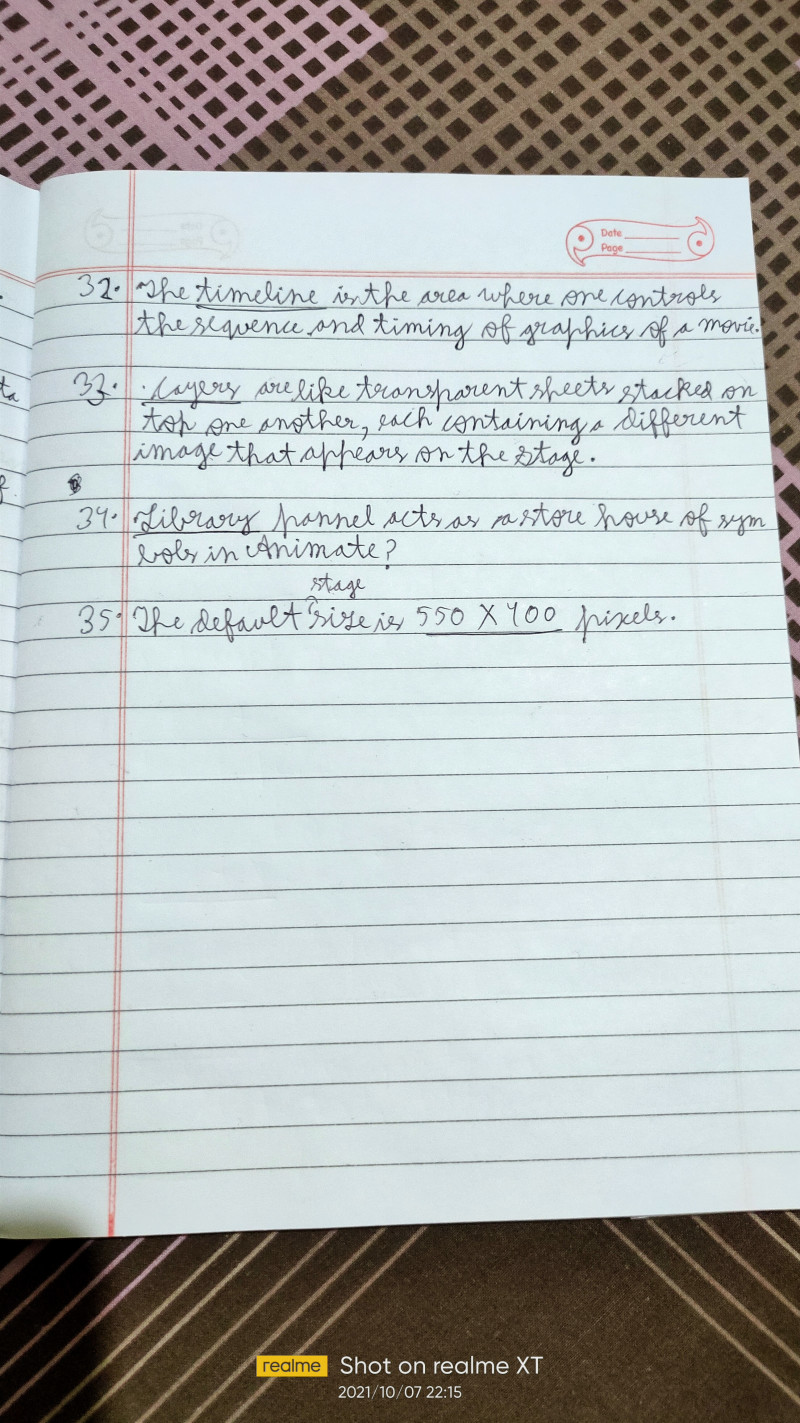 Date
Page
32. The timeline is the area where one controls
the sequence and timing of graphics of a movie.
33. Layers are like transparent sheets stacked on
top one another, each containing a different
image that appears on the stage.
34. Library pannel acts as a store house of sym
bols in Animate?
stage
35. The default size is 550 X 400 pixels.
ta
f.
realme Shot on realme XT
2021/10/07 22:15